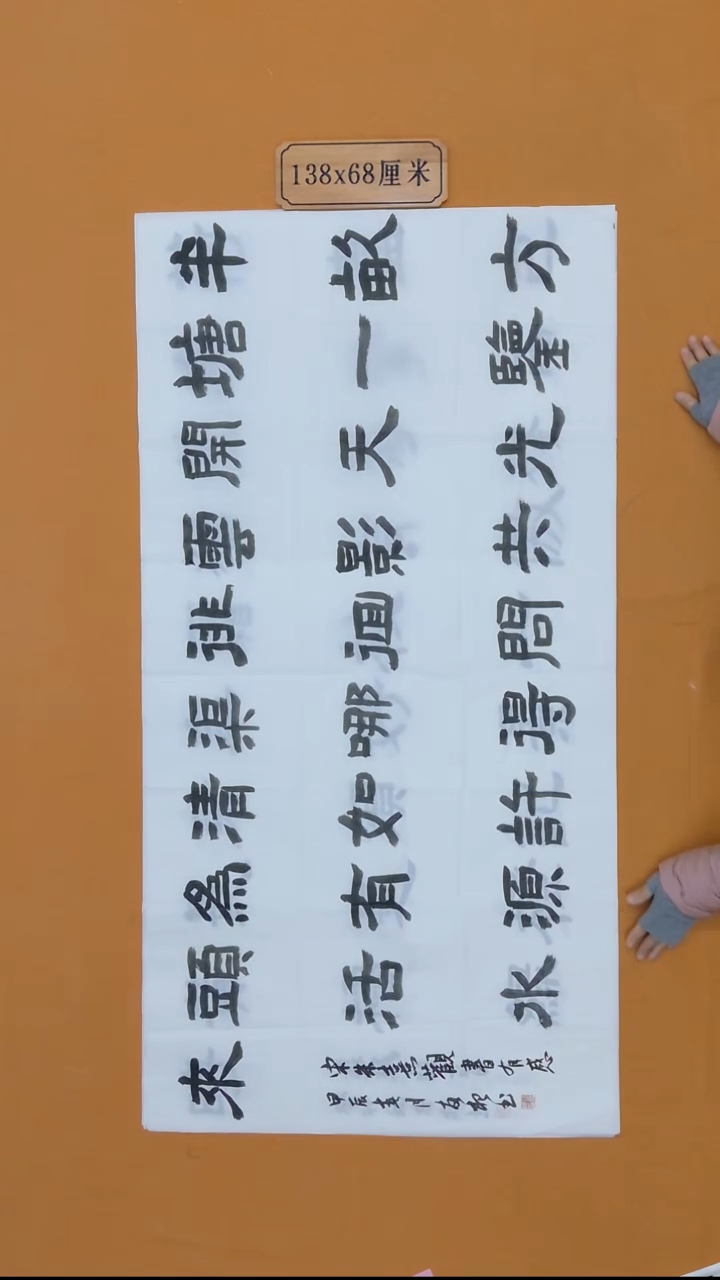 半畝方
塘一鑒
開天光
雲影共
徘徊問
渠哪得
清如許
為有源
頭活水
來
宋朱熹觀書有感
甲辰 月 書
138x68厘米